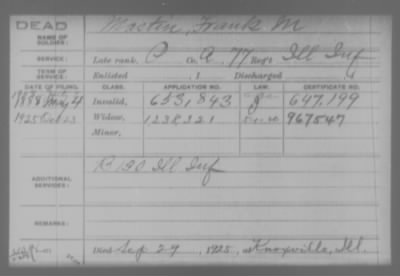 DEAD
NAME OF SOLDIER: Mastin, Frank M
SERVICE: Late rank, P Co. A, 77 Reg't Ill Inf
TERM OF SERVICE: Enlisted , 1 Discharged , 1
DATE OF FILING. CLASS. APPLICATION NO. LAW. CERTIFICATE NO.
1888 May 4 Invalid, 653,843 647,199
1925 Oct 23 Widow, 1238321 967547
Minor,
ADDITIONAL SERVICES: B 130 Ill Inf
REMARKS:
Died Sep 29, 1925, at Knoxville, Ill.